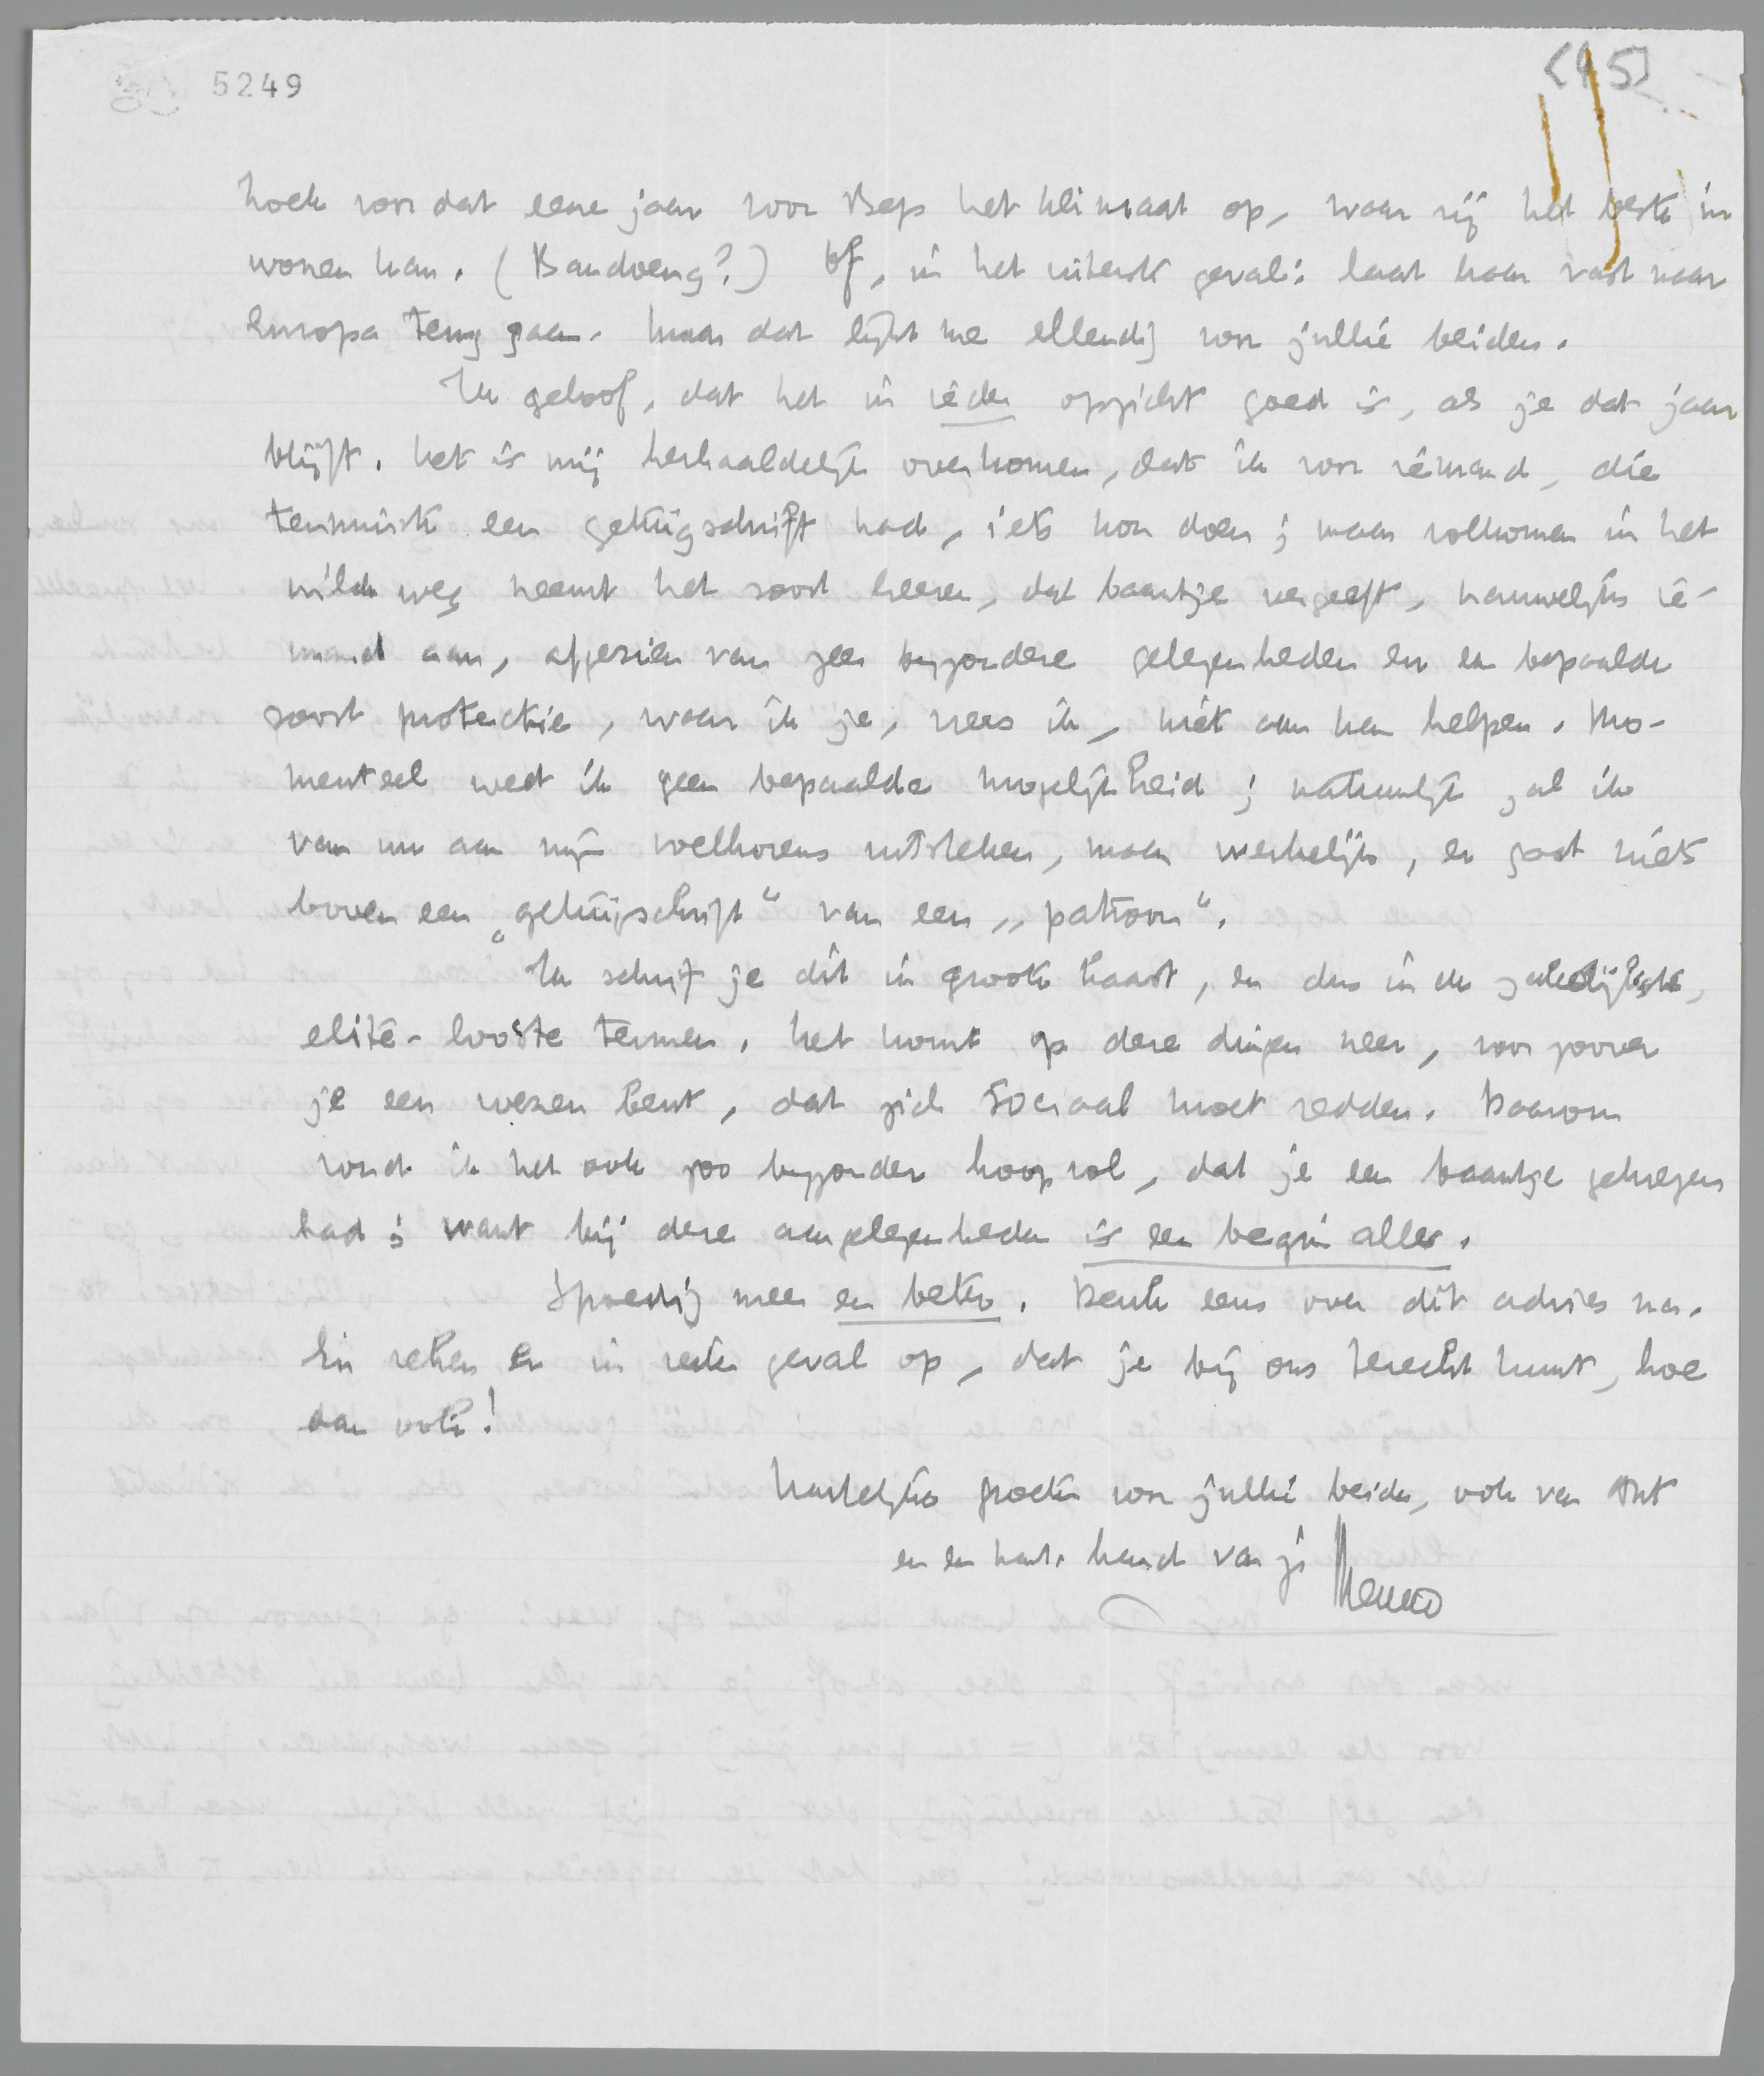 5249
[45]
Zoek voor dat eene jaar voor Bep het klimaat op, waar zij het beste in
wonen kan. (Bandoeng?) Of, in het uiterste geval: laat haar vast naar
Europa terug gaan. Maar dat lijkt me ellendig voor jullie beiden.
Ik geloof, dat het in ieder opzicht goed is, als je dat jaar
blijft. Het is mij herhaaldelijk overkomen, dat ik voor iemand, die
tenminste een getuigschrift had, iets kon doen; maar volkomen in het
wilde weg neemt het soort heeren, dat baantje vergeeft, nauwelijks ie-
mand aan, afgezien van zeer bijzondere gelegenheden en een bepaalde
soort protectie, waar ik je, vrees ik, niet aan kan helpen. Mo-
menteel weet ik geen bepaalde mogelijkheid; natuurlijk zal ik
van nu aan mijn voelhorens uitsteken, maar werkelijk, er gaat niets
boven een „getuigschrift" van een „patroon".
Ik schrijf je dit in groote haast, en dus in de zakelijkste,
elite-looste termen. Het komt op deze dingen neer, voor zoover
je een wezen bent, dat zich sociaal moet redden. Daarom
vond ik het ook zoo bijzonder hoopvol, dat je een baantje gekregen
had; want bij deze aangelegenheden is een begin alles.
Spoedig meer en beter. Denk eens over dit advies na.
En reken er in ieder geval op, dat je bij ons terecht kunt, hoe
dan ook!
Hartelijke groeten voor jullie beiden, ook van Ant
en een hart. hand van je Menno